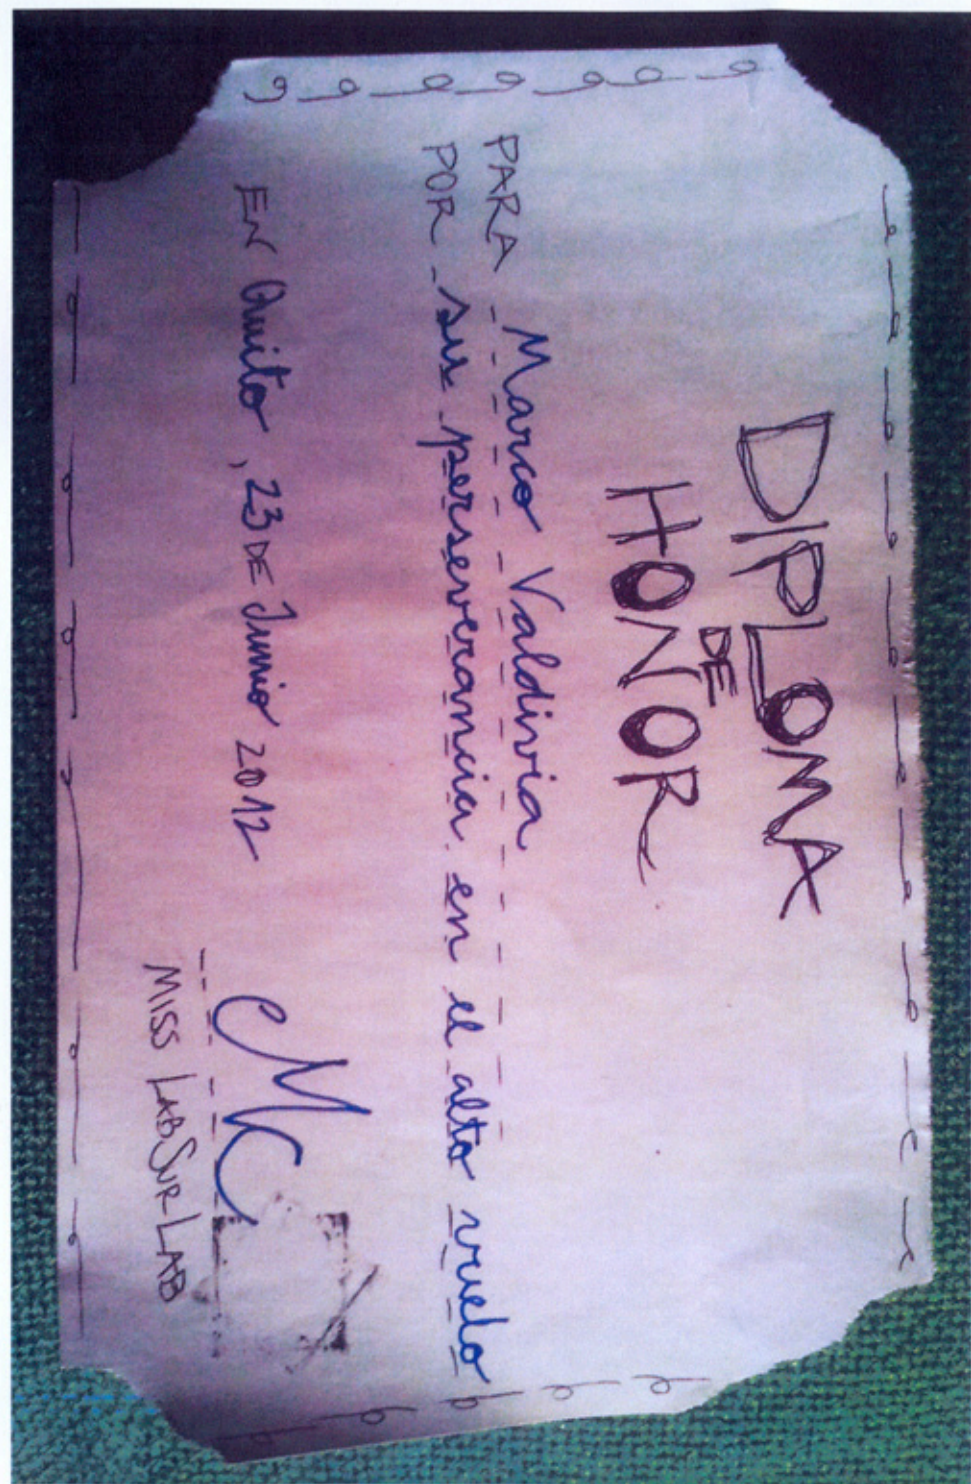 DIPLOMA
DE
HONOR
PARA Marco Valdivia
POR su perseverancia en el alto vuelo
EN Quito, 23 DE Junio 2012
MC
MISS LABSURLAB